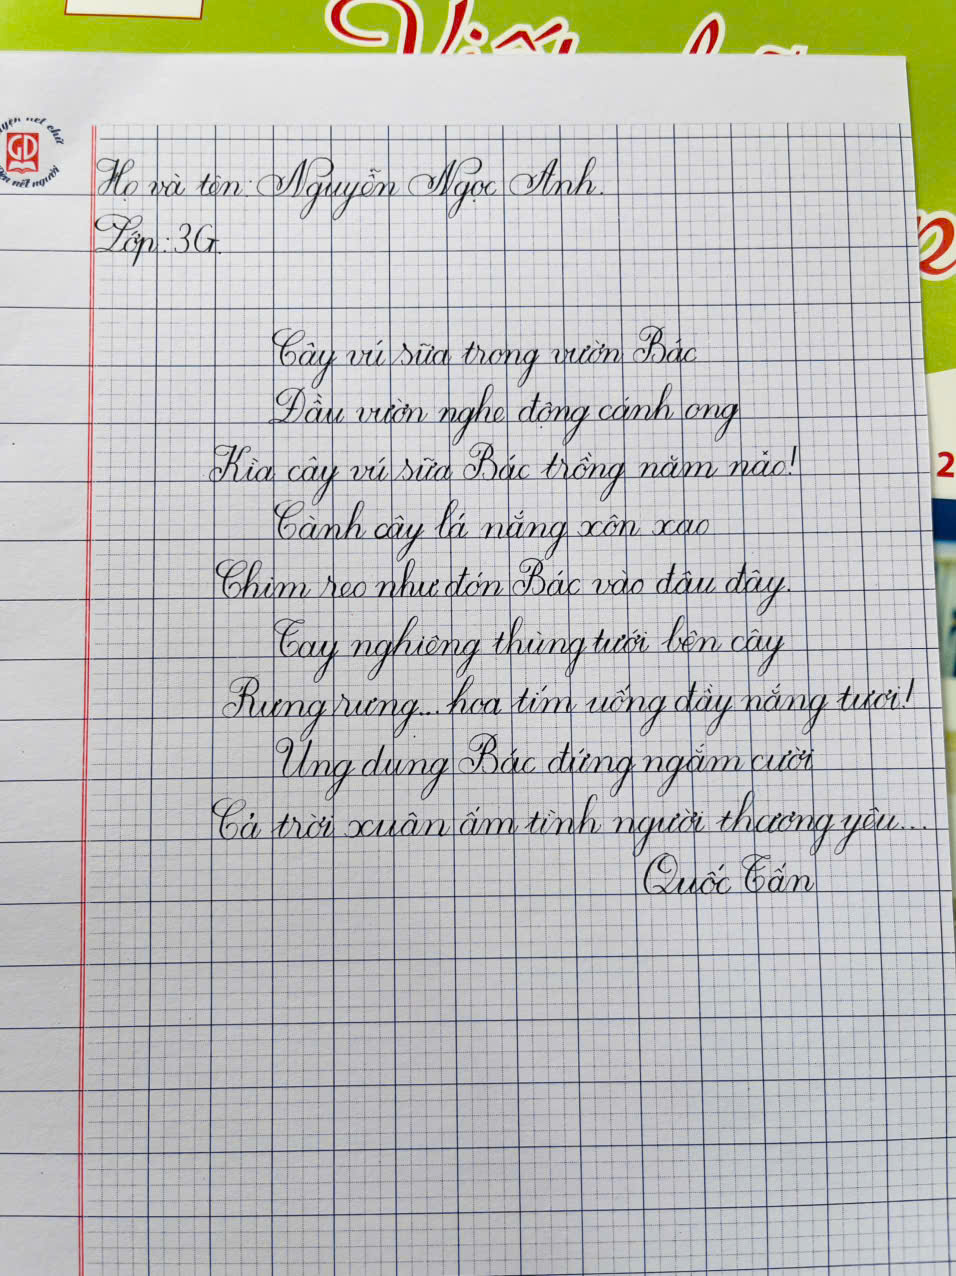 Viết
luyện nét chữ
GD
rèn nết người
Họ và tên: Nguyễn Ngọc Anh.
Lớp: 3G.
Cây vú sữa trong vườn Bác
Đầu vườn nghe động cánh ong
Kìa cây vú sữa Bác trồng năm nào!
Cành cây lá nắng xôn xao
Chim reo như đón Bác vào đâu đây.
Tay nghiêng thùng tưới bên cây
Rưng rưng... hoa tím uống đầy nắng tươi!
Ung dung Bác đứng ngắm cười
Cả trời xuân ấm tình người thương yêu...
Quốc Tấn
2